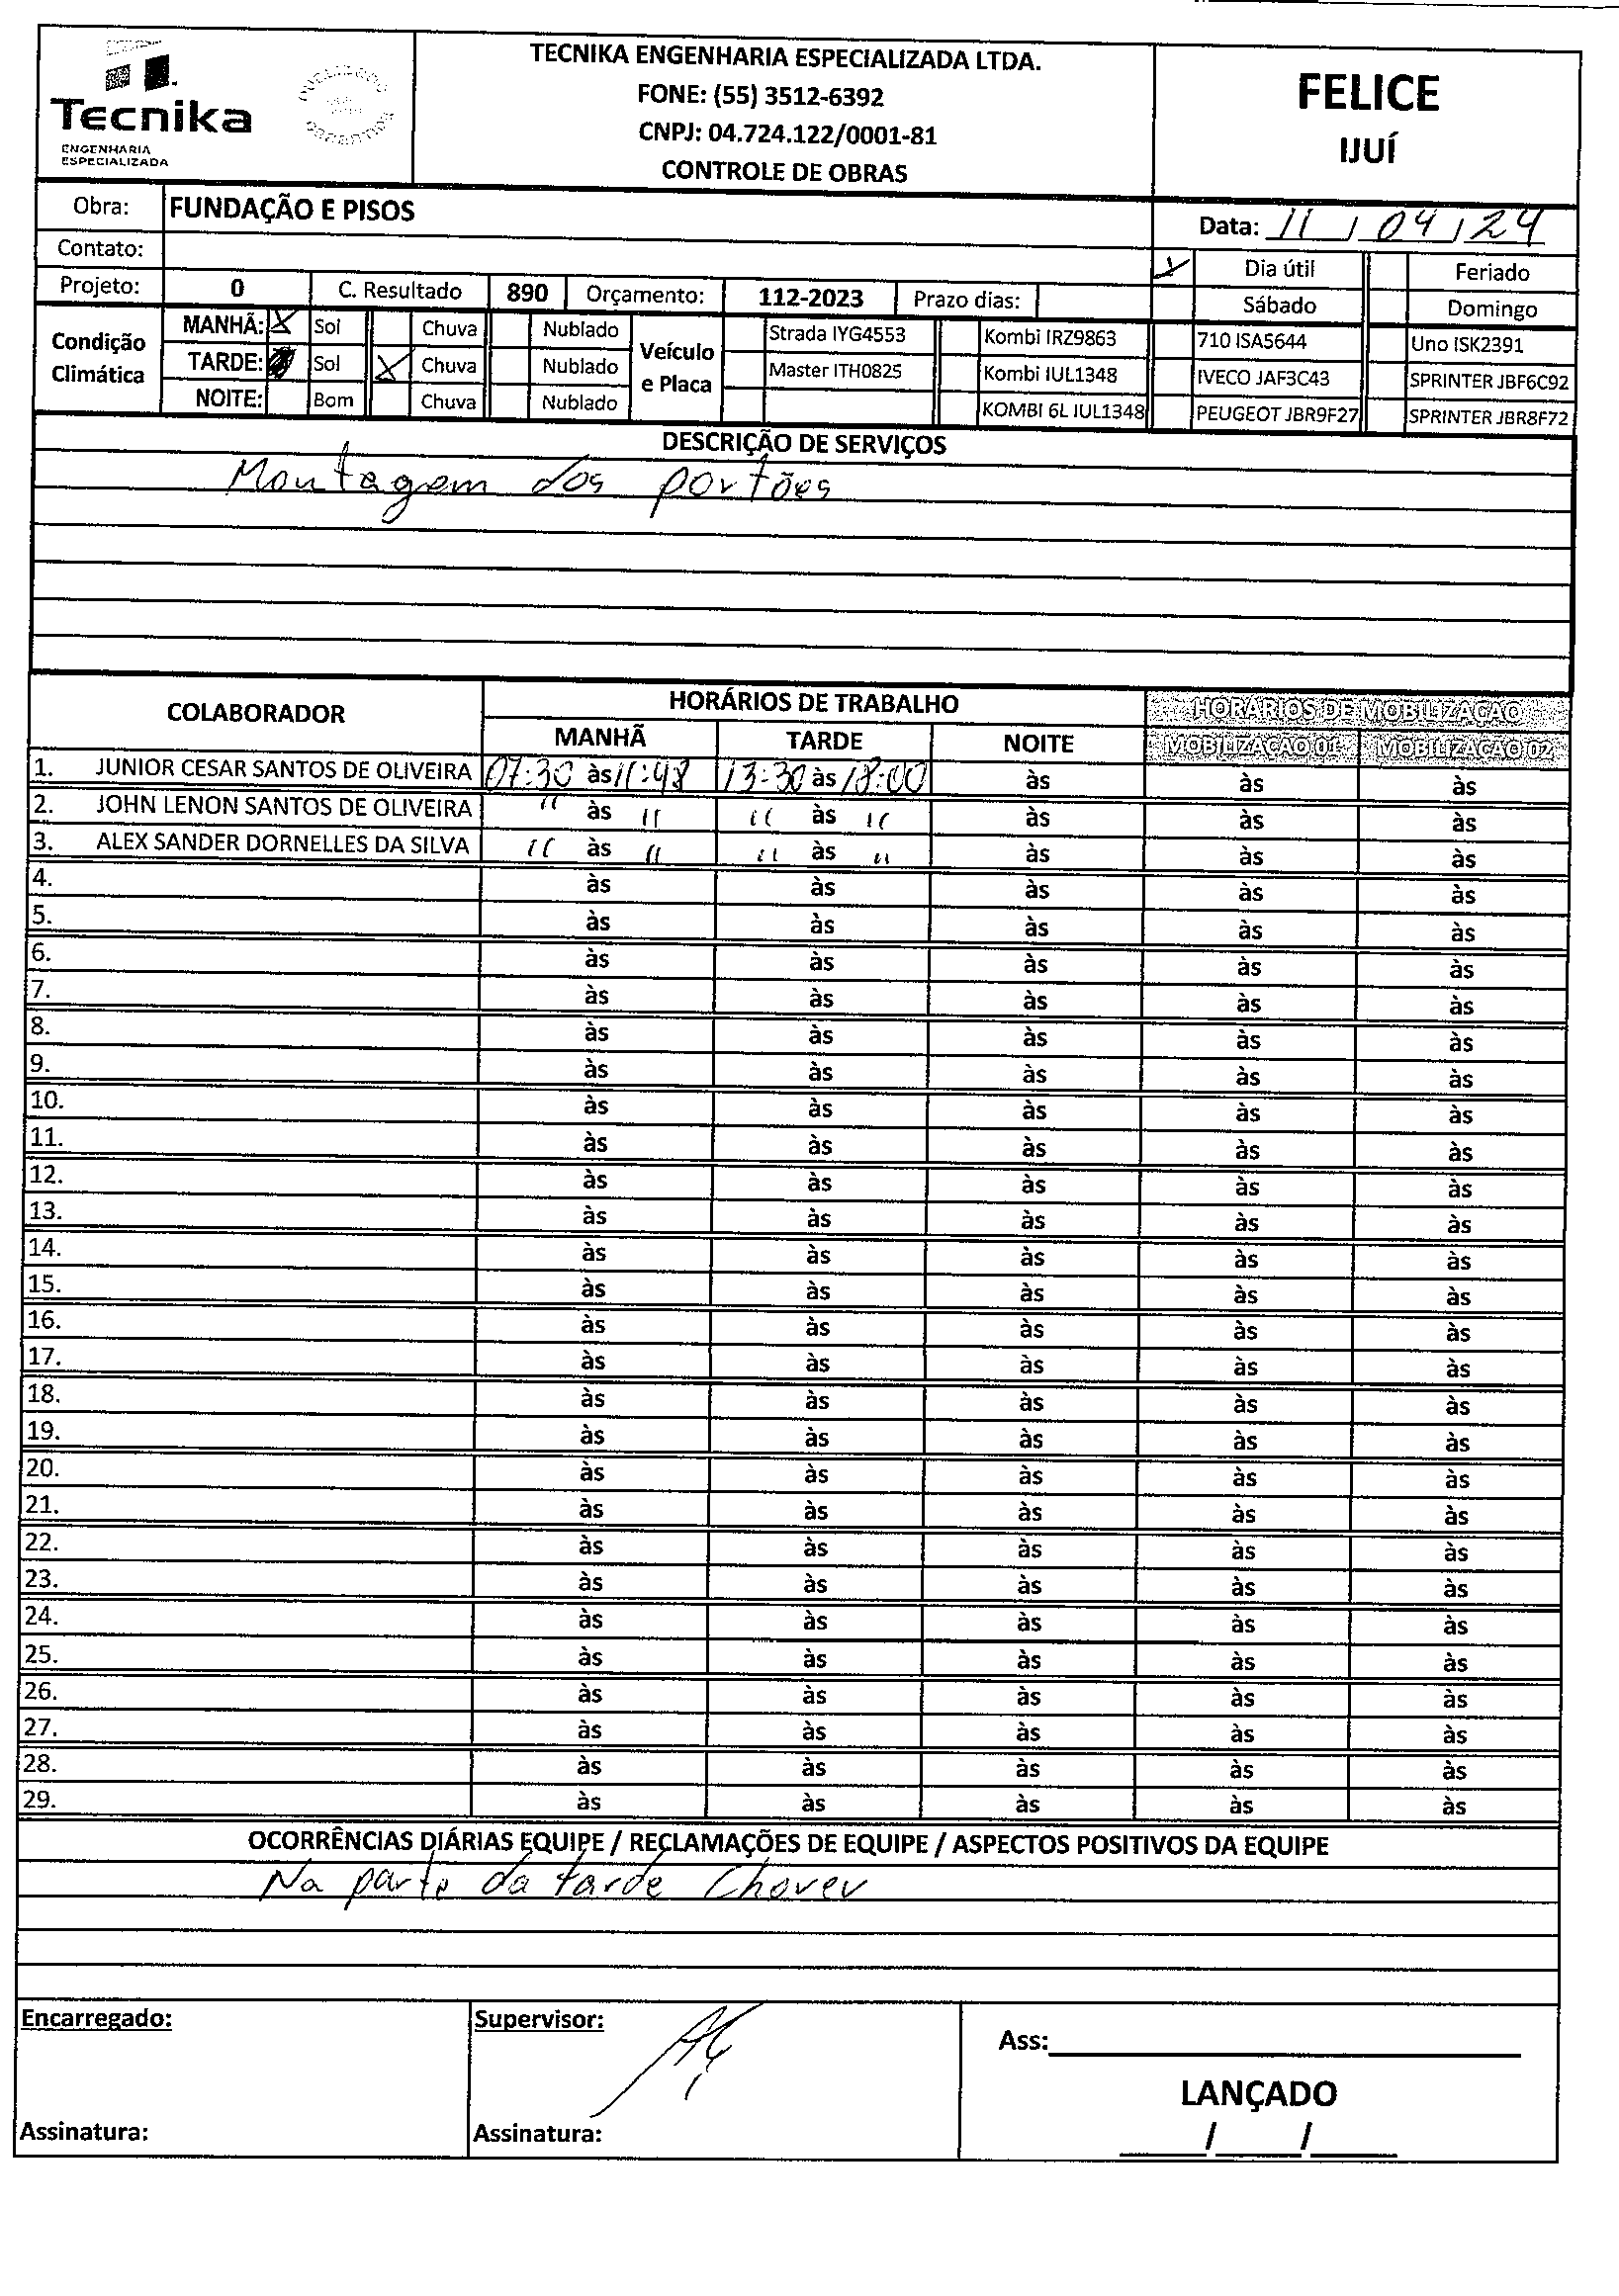 TECNIKA ENGENHARIA ESPECIALIZADA LTDA.
FONE: (55) 3512-6392
CNPJ: 04.724.122/0001-81
CONTROLE DE OBRAS
Tecnika
ENGENHARIA
ESPECIALIZADA
FELICE
IJUÍ
Obra: FUNDAÇÃO E PISOS
Data: 11 / 04 / 24
Contato:
X Dia útil Feriado
Projeto: 0 C. Resultado 890 Orçamento: 112-2023 Prazo dias: Sábado Domingo
Condição Climática
MANHÃ: X Sol Chuva Nublado
TARDE: Sol X Chuva Nublado
NOITE: Bom Chuva Nublado
Veículo e Placa
Strada IYG4553 Kombi IRZ9863 710 ISA5644 Uno ISK2391
Master ITH0825 Kombi IUL1348 IVECO JAF3C43 SPRINTER JBF6C92
KOMBI 6L IUL1348 PEUGEOT JBR9F27 SPRINTER JBR8F72
DESCRIÇÃO DE SERVIÇOS
Montagem dos portões
COLABORADOR HORÁRIOS DE TRABALHO HORÁRIOS DE MOBILIZAÇÃO
MANHÃ TARDE NOITE MOBILIZAÇAO 01 MOBILIZAÇAO 02
1. JUNIOR CESAR SANTOS DE OLIVEIRA 07:30 às 11:48 13:30 às 18:00 às às às
2. JOHN LENON SANTOS DE OLIVEIRA " às " " às " às às às
3. ALEX SANDER DORNELLES DA SILVA " às " " às " às às às
4. às às às às às
5. às às às às às
6. às às às às às
7. às às às às às
8. às às às às às
9. às às às às às
10. às às às às às
11. às às às às às
12. às às às às às
13. às às às às às
14. às às às às às
15. às às às às às
16. às às às às às
17. às às às às às
18. às às às às às
19. às às às às às
20. às às às às às
21. às às às às às
22. às às às às às
23. às às às às às
24. às às às às às
25. às às às às às
26. às às às às às
27. às às às às às
28. às às às às às
29. às às às às às
OCORRÊNCIAS DIÁRIAS EQUIPE / RECLAMAÇÕES DE EQUIPE / ASPECTOS POSITIVOS DA EQUIPE
Na parte da tarde Chover
Encarregado: Supervisor:
Ass:
LANÇADO
Assinatura: Assinatura: / /